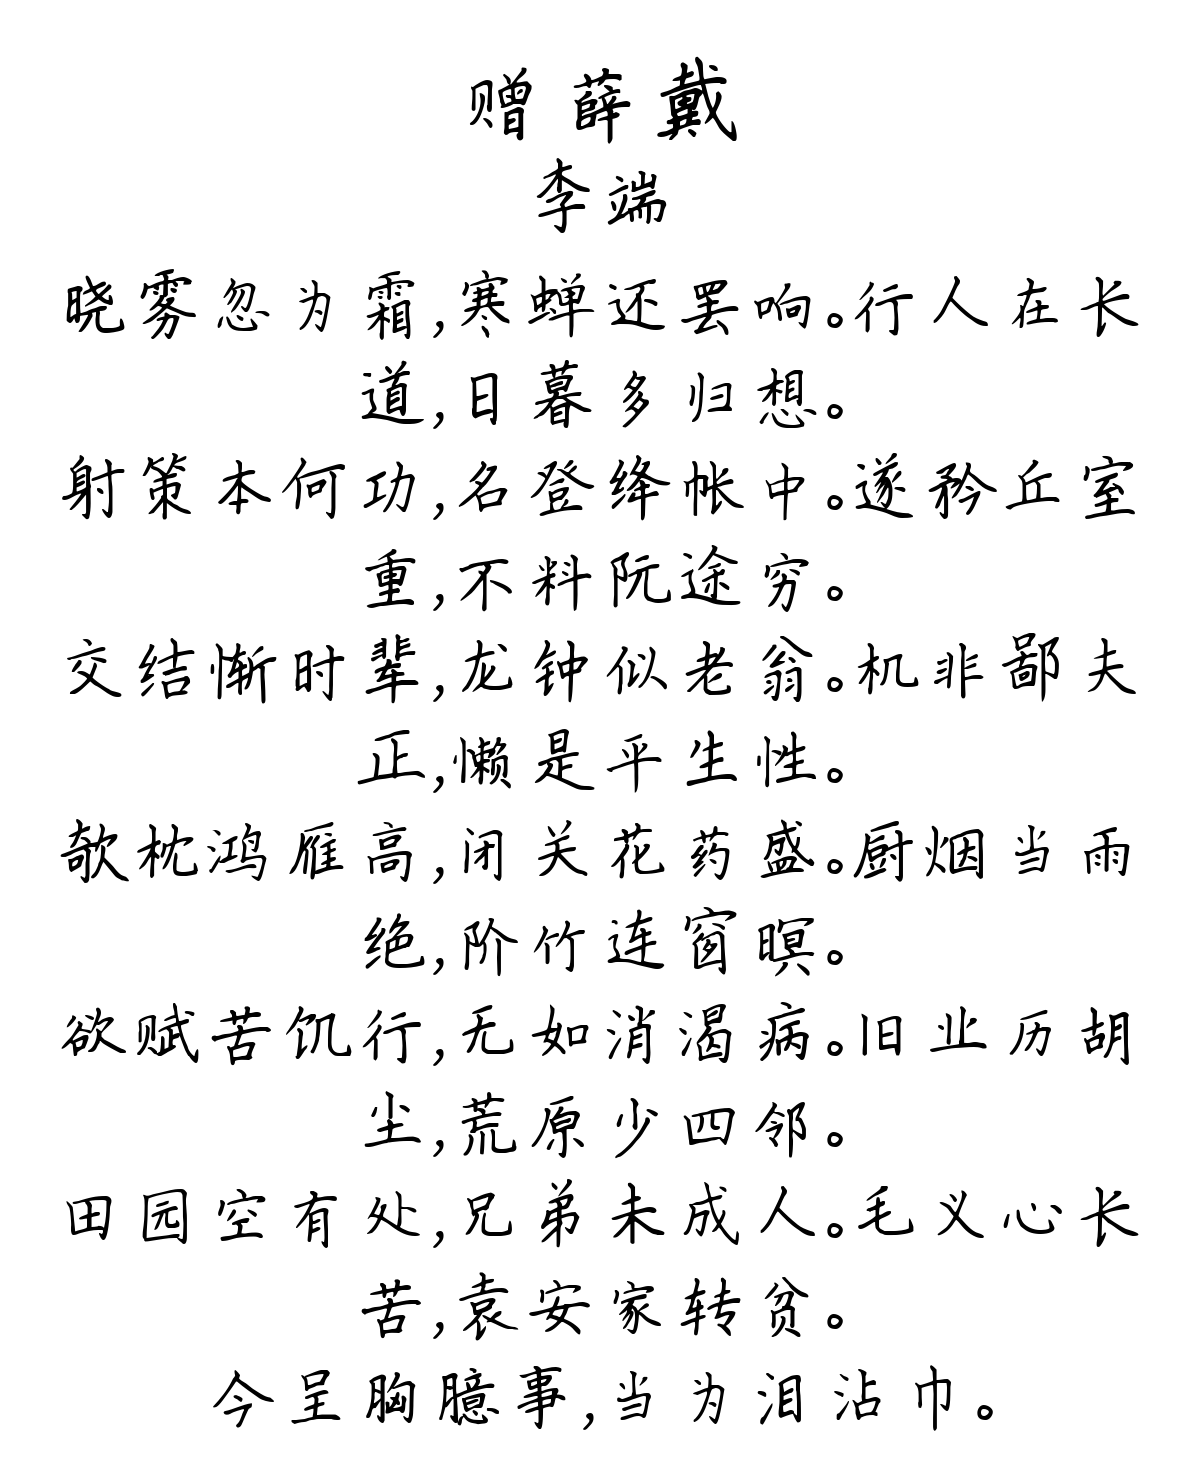 赠薛戴
李端
晓雾忽为霜,寒蝉还罢响。行人在长
道,日暮多归想。
射策本何功,名登绛帐中。遂矜丘室
重,不料阮途穷。
交结惭时辈,龙钟似老翁。机非鄙夫
正,懒是平生性。
欹枕鸿雁高,闭关花药盛。厨烟当雨
绝,阶竹连窗暝。
欲赋苦饥行,无如消渴病。旧业历胡
尘,荒原少四邻。
田园空有处,兄弟未成人。毛义心长
苦,袁安家转贫。
今呈胸臆事,当为泪沾巾。